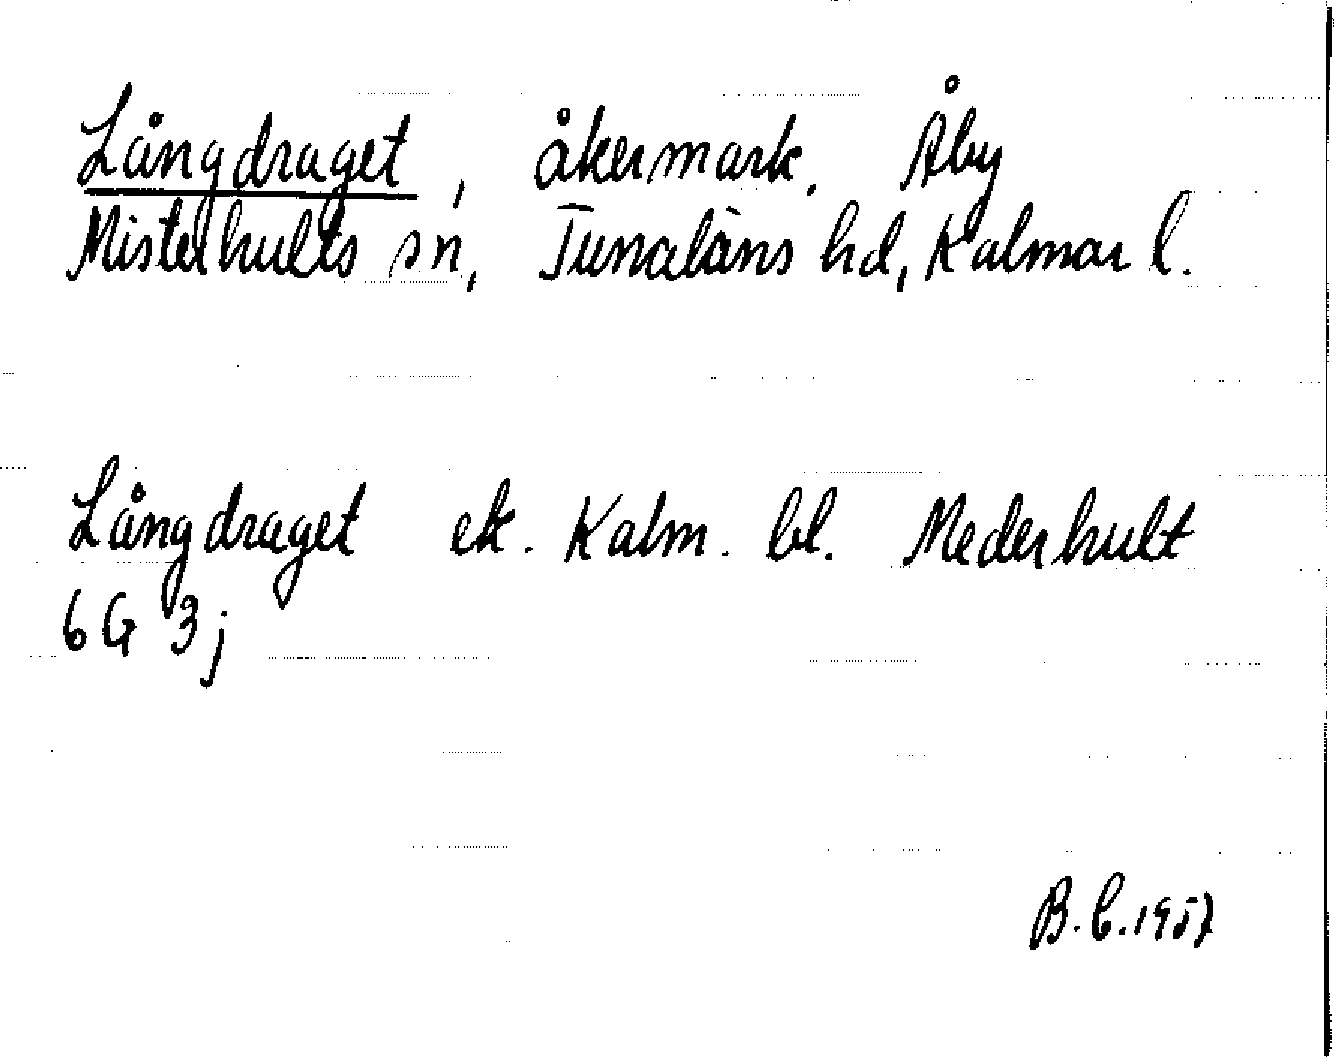 Långdraget, åkermark. Åby
Misterhults sn, Tunaläns hd, Kalmar l.
Långdraget ek. Kalm. bl. Mederhult
6G 3j
B.C. 1957